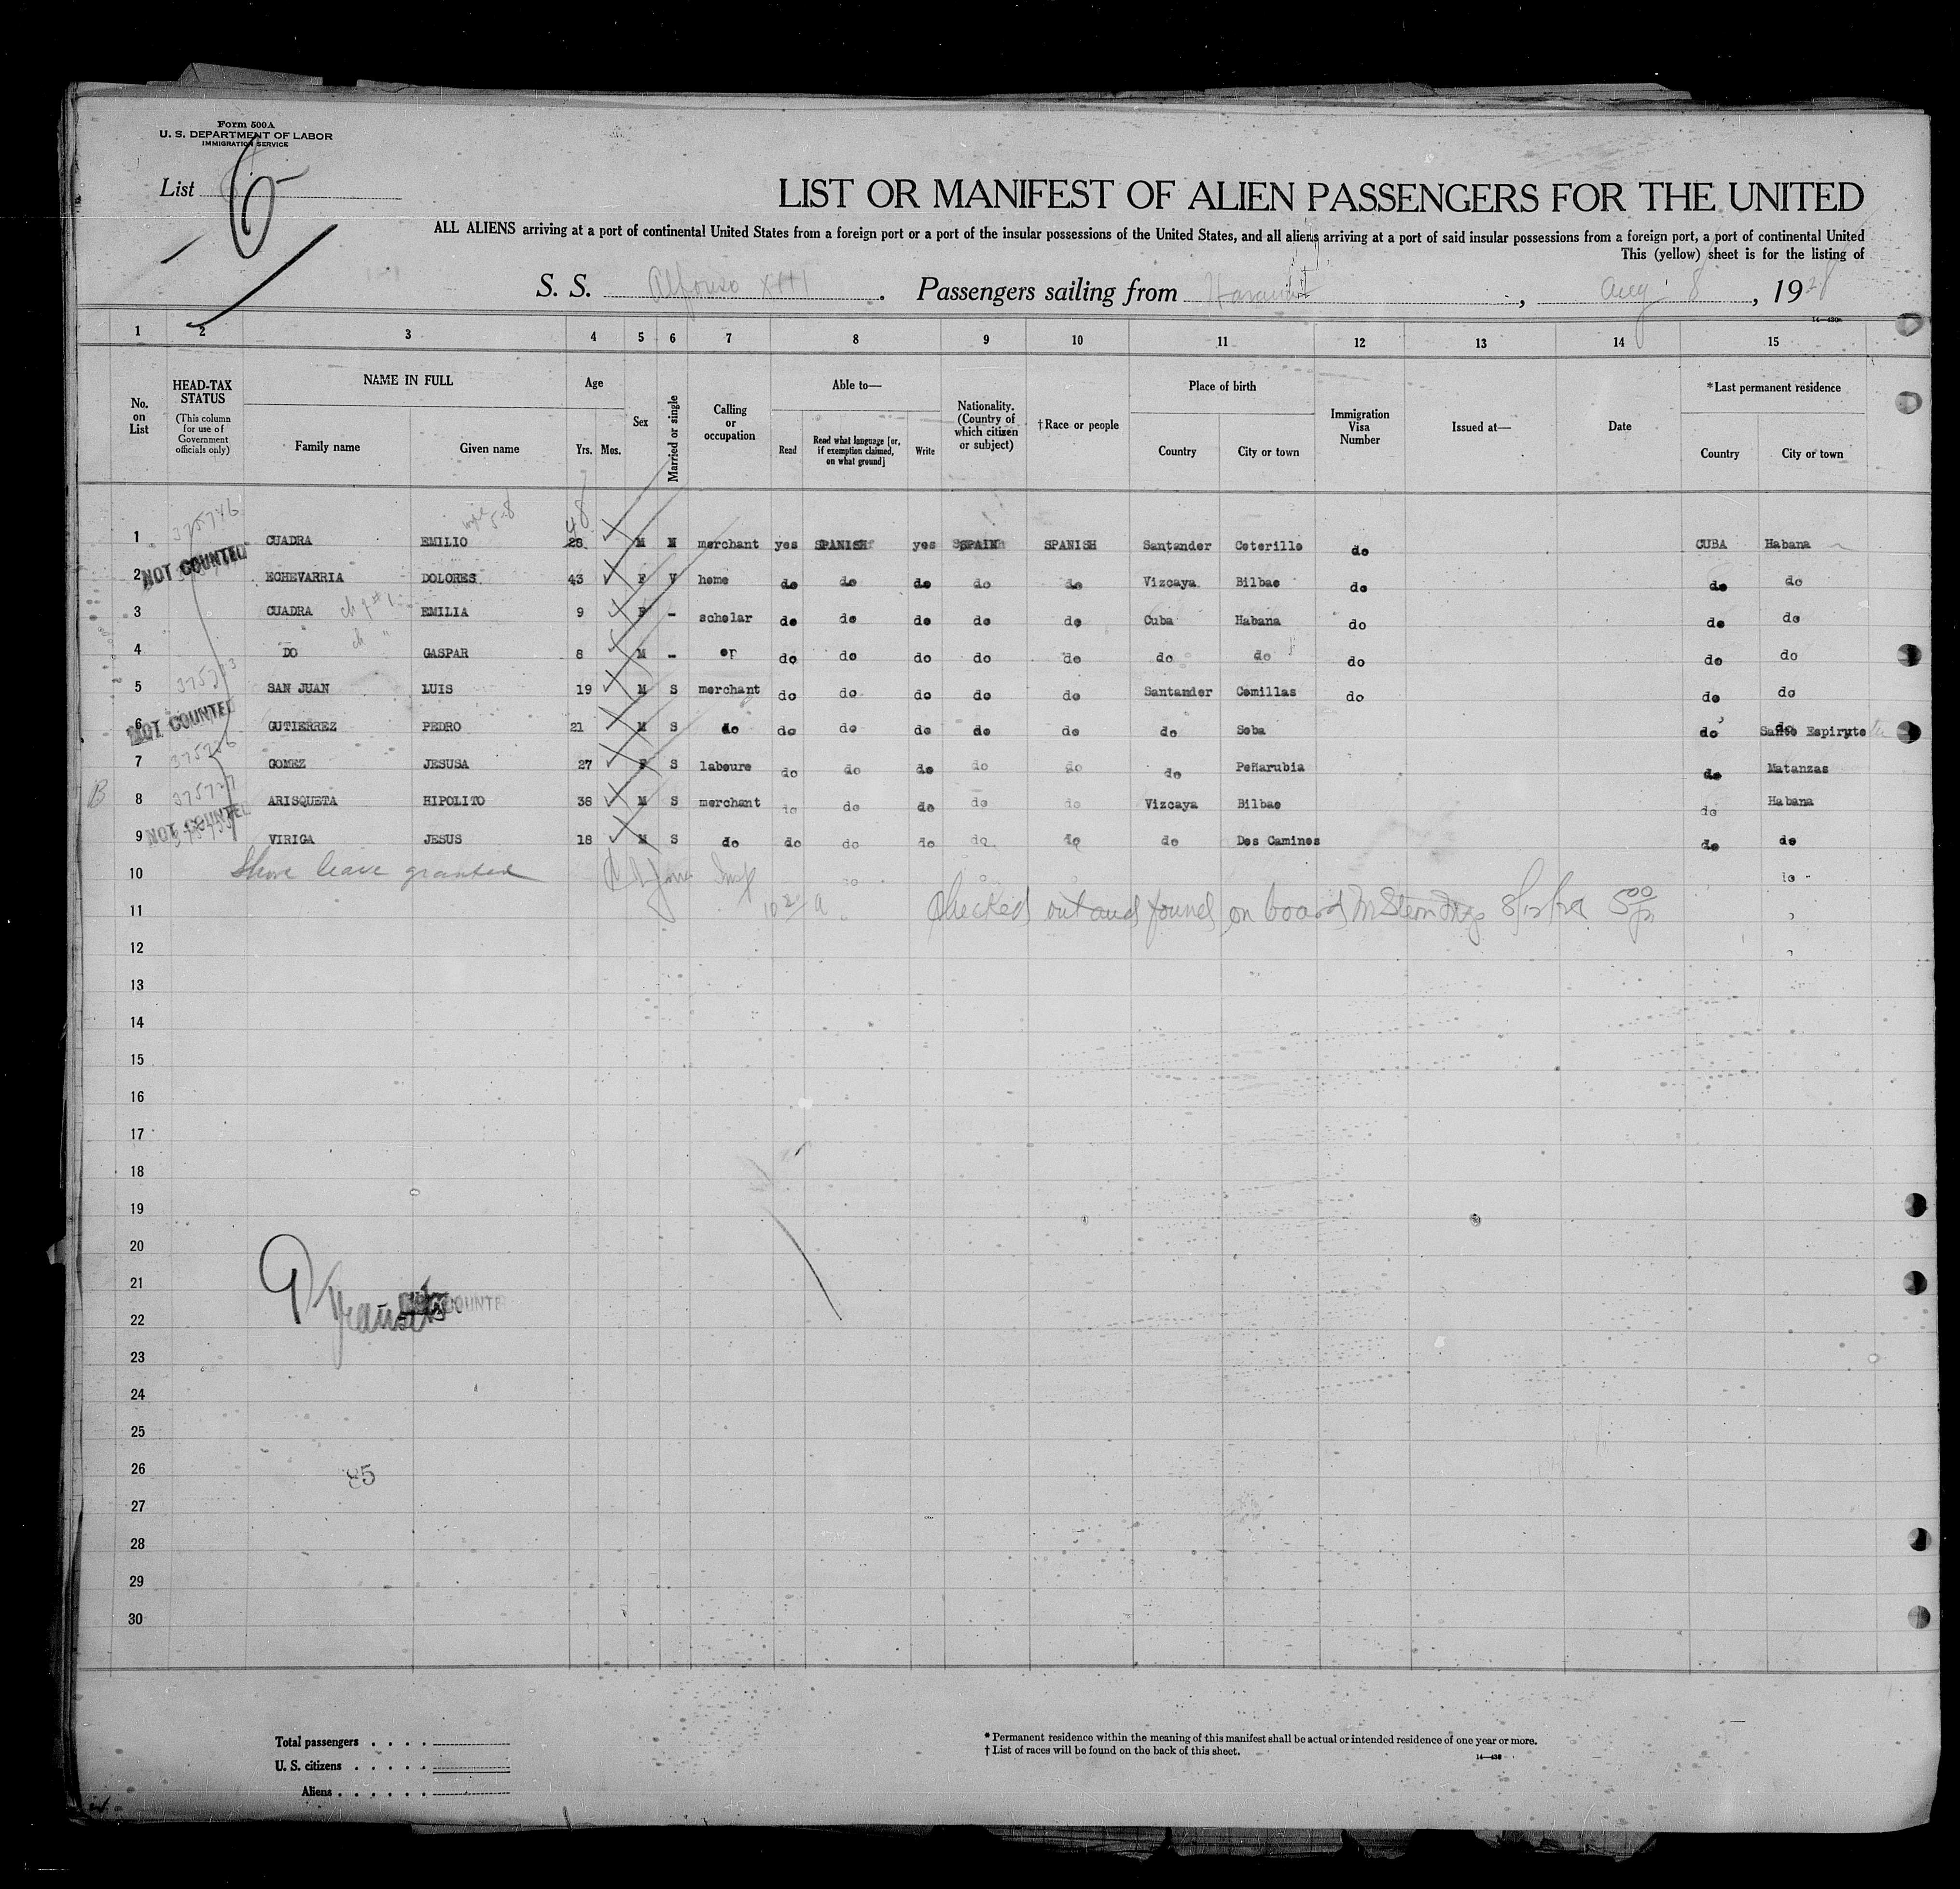 Form 500A
U. S. DEPARTMENT OF LABOR
IMMIGRATION SERVICE
List 6
LIST OR MANIFEST OF ALIEN PASSENGERS FOR THE UNITED
ALL ALIENS arriving at a port of continental United States from a foreign port or a port of the insular possessions of the United States, and all aliens arriving at a port of said insular possessions from a foreign port, a port of continental United
This (yellow) sheet is for the listing of
S. S. Alfonso XIII. Passengers sailing from Havana, Aug 8, 1928
1 2 3 4 5 6 7 8 9 10 11 12 13 14 15
No. on List
HEAD-TAX STATUS (This column for use of Government officials only)
NAME IN FULL Family name Given name
Age Yrs. Mos.
Sex
Married or single
Calling or occupation
Able to— Read Read what language [or, if exemption claimed, on what ground] Write
Nationality. (Country of which citizen or subject)
†Race or people
Place of birth Country City or town
Immigration Visa Number
Issued at—
Date
*Last permanent residence Country City or town
1 375746 CUADRA EMILIO 28 48 M M merchant yes SPANISH yes SPAIN SPANISH Santander Coterillo do CUBA Habana
NOT COUNTED
2 ECHEVARRIA DOLORES 43 F V home do do do do do Vizcaya Bilbao do do do
3 CUADRA EMILIA 9 F - scholar do do do do do Cuba Habana do do do
4 DO GASPAR 8 M - or do do do do do do do do do do
5 SAN JUAN LUIS 19 M S merchant do do do do do Santander Comillas do do do
6 NOT COUNTED GUTIERREZ PEDRO 21 M S do do do do do do do Soba do Santo Espiryto
7 GOMEZ JESUSA 27 F S laboure do do do do do do Peñarubia do Matanzas
8 ARISQUETA HIPOLITO 38 M S merchant do do do do do Vizcaya Bilbao do Habana
NOT COUNTED
9 VIRIGA JESUS 18 M S do do do do do do do Dos Caminos do do
10 Shore leave granted
11 Checked out and found on board
12
13
14
15
16
17
18
19
20
21
22 9 Transit
23
24
25
26 85
27
28
29
30
Total passengers
U. S. citizens
Aliens
* Permanent residence within the meaning of this manifest shall be actual or intended residence of one year or more.
† List of races will be found on the back of this sheet.
14—430